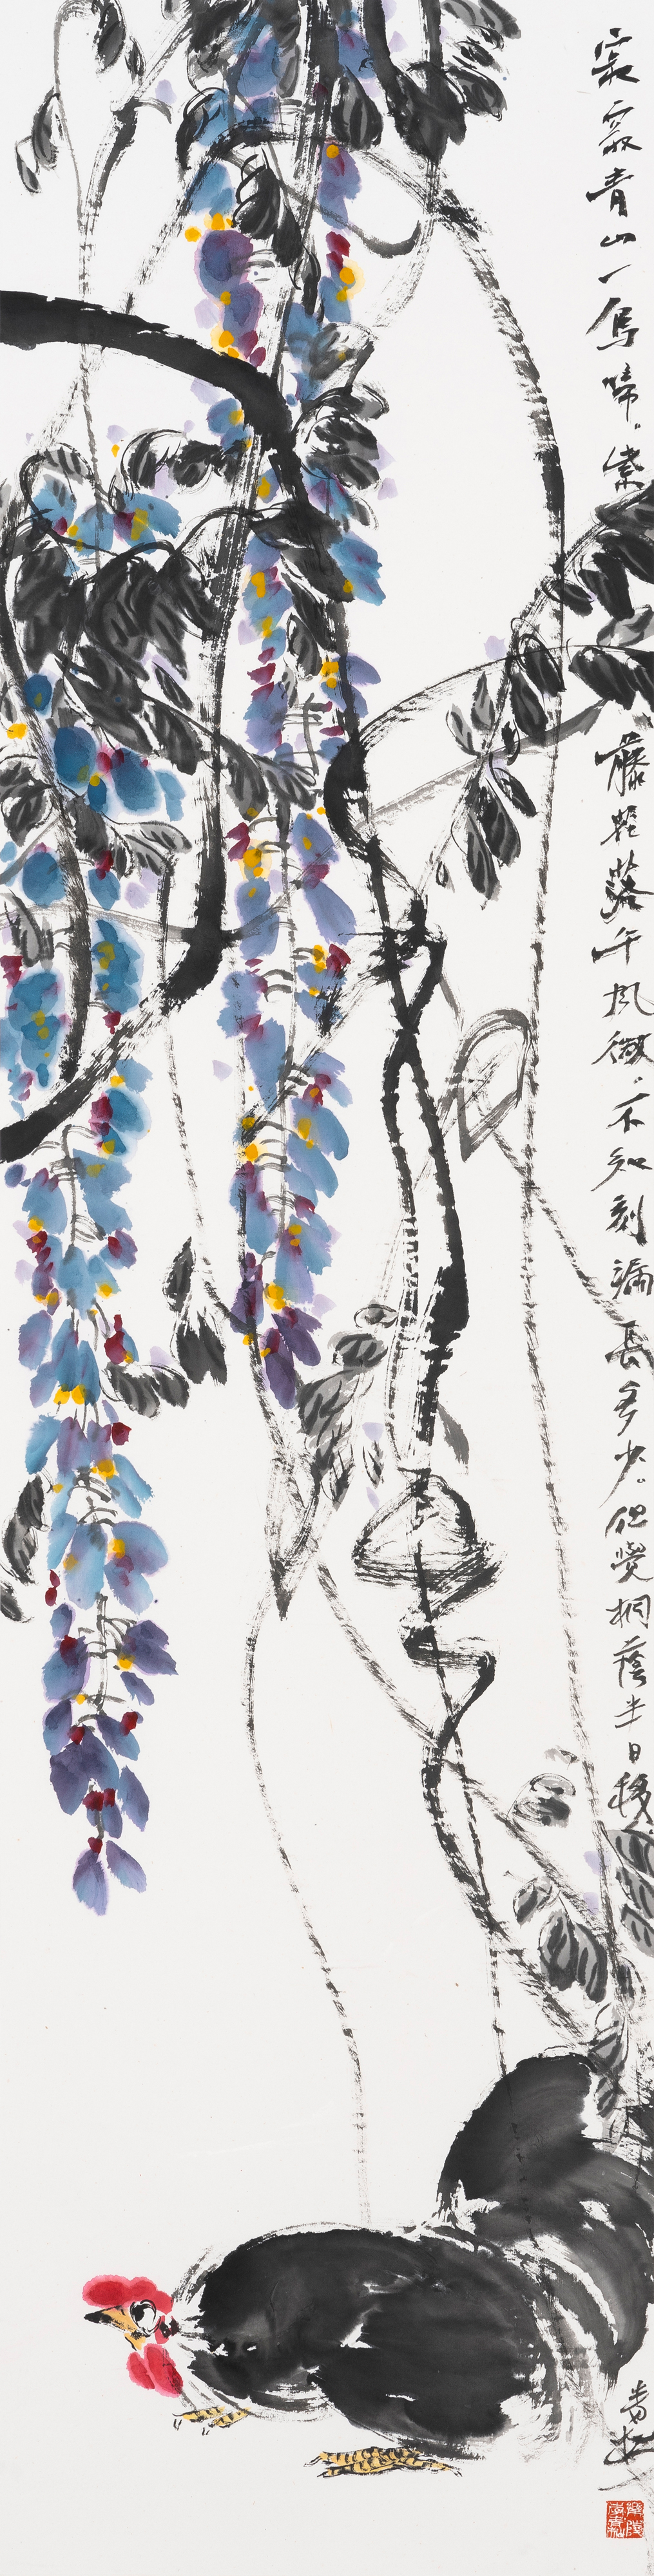 寂寂青山一鳥啼。紫藤花落午風微。不知刻漏長多少。但覺桐蔭半日移
青松